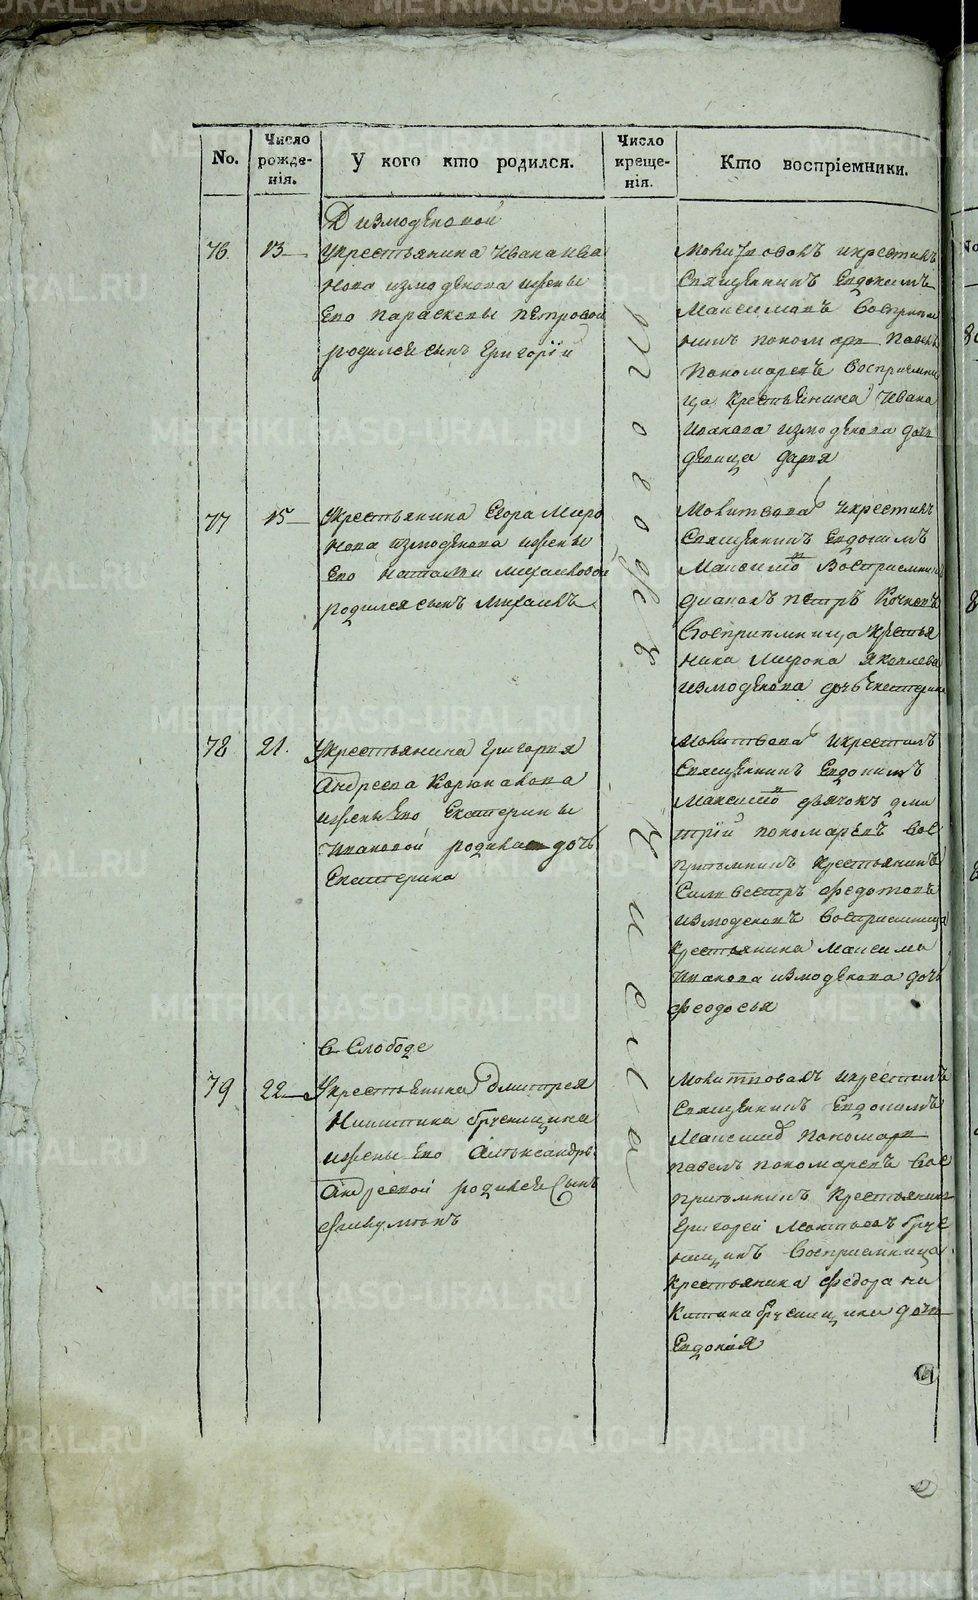 METRIKI.GASO-URAL.RU
No.
Число рожде-нія.
У кого кто родился.
Число креще-нія.
Кто воспріемники.
Д измоденовой
76.
13
Укрестьянина Ивана Ива
нова измоденова ижены
Его Параскевы Петровой
родился сынъ Григорій
Молитвовалъ икрестилъ
Священникъ Евдокимъ
Максимовъ Восприем
никъ пономарь Павелъ
Пономаревъ Восприемни
ца Крестьянина Ивана
Иванова измоденова дочь
девица дарья
77
15
Укрестьянина Егора Миро
нова измоденова ижены
Его Натальи Михайловой
родился сынъ Михаилъ
Молитвовалъ икрестилъ
Священникъ Евдокимъ
Максимовъ Восприемникъ
диаконъ Петръ
Восприемница Крестья
нина Мирона Яковлева
измоденова дочь Екатерина
78
21.
Укрестьянина Григорья
Андреева Корюкалова
ижены Его Екатерины
Ивановой родилась дочь
Екатерина
Молитвовалъ икрестилъ
Священникъ Евдокимъ
Максимовъ дьячокъ дми
трій пономаревъ Вос
приемникъ Крестьянинъ
Сильвестръ Федотовъ
измоденовъ Восприемница
Крестьянина Максима
Иванова измоденова дочь
феодосья
в Слободе
79
22
Укрестьянина Дмитрея
Никитина брусницына
ижены Его Александры
Андреевой родился Сынъ
филумонъ
Молитвовалъ икрестилъ
Священникъ Евдокимъ
Максимовъ Пономарь
павелъ пономаревъ Вос
приемникъ Крестьянинъ
Григорей Леонтьевъ брус
ницинъ Восприемница
Крестьянина федора ни
китина брусницына дочь
Евдокия
того же
числа